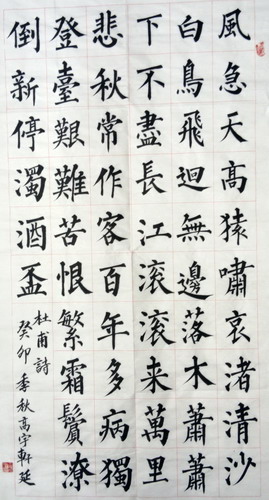 風急天高猿嘯哀渚清沙
白鳥飛迴無邊落木蕭蕭
下不盡長江滚滚来萬里
悲秋常作客百年多病獨
登臺艱難苦恨繁霜鬢潦
倒新停濁酒盃
杜甫詩
癸卯季秋高宇軒延